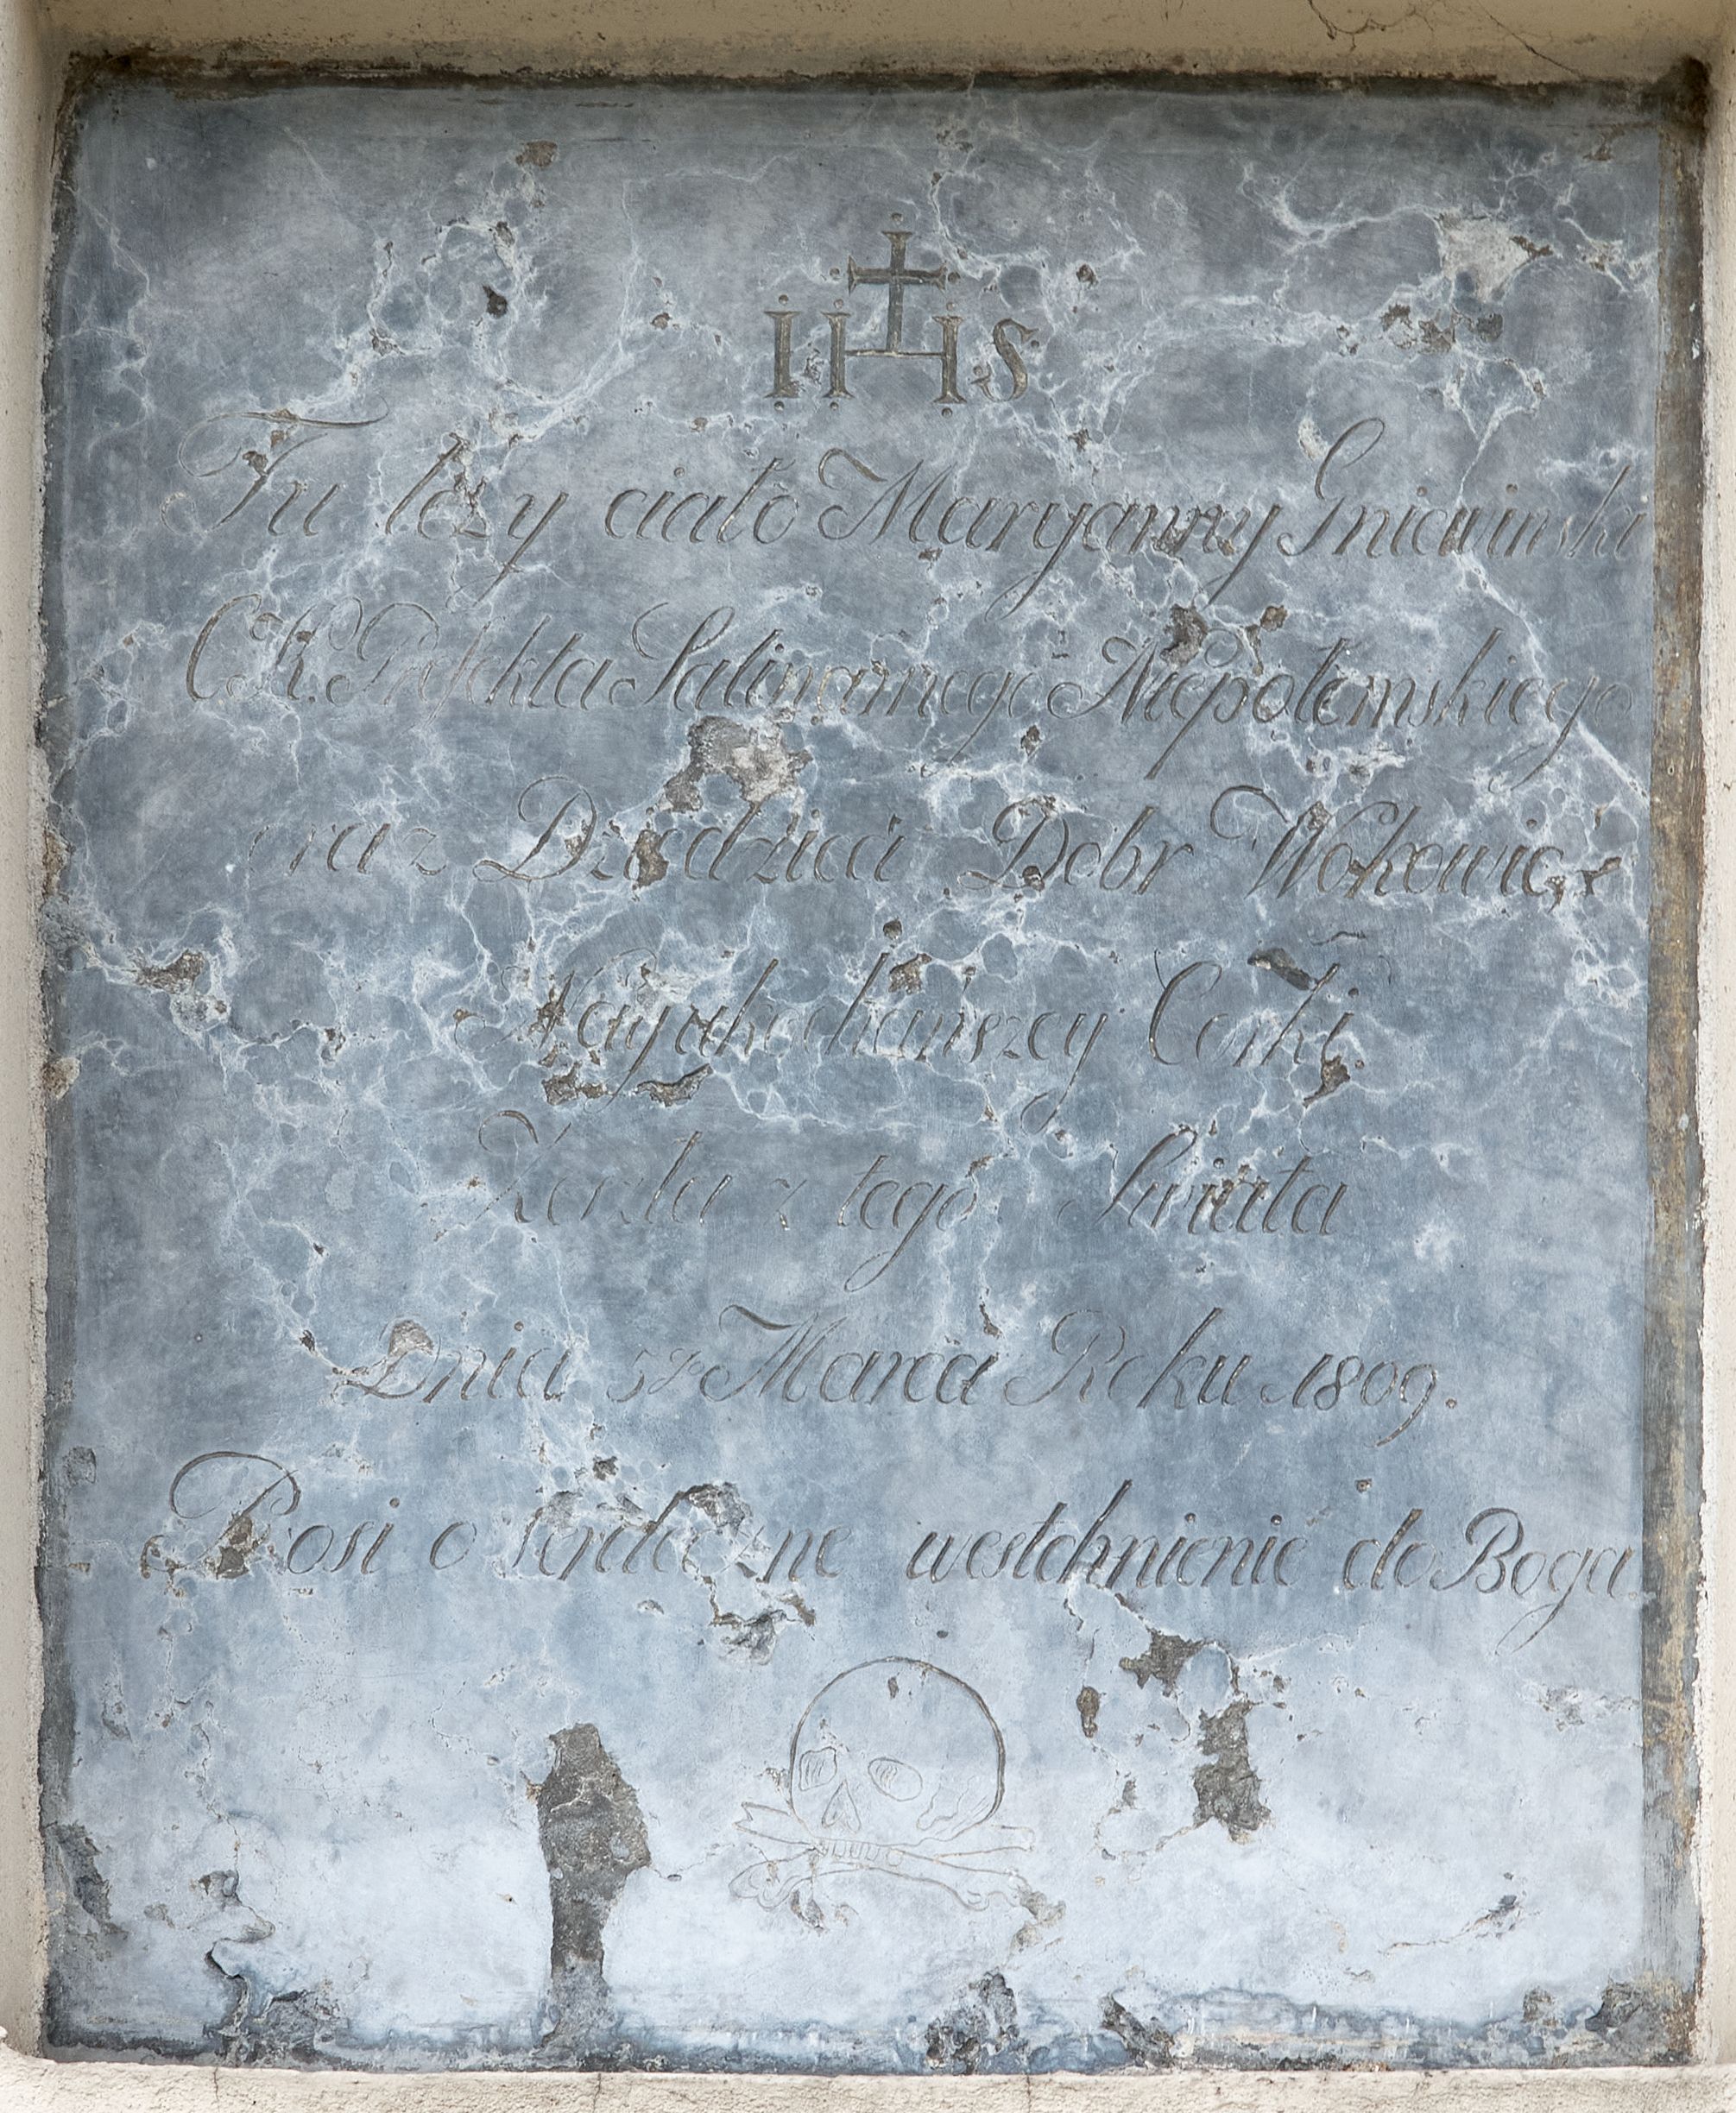 IHS
Tu leży ciało Maryanny Gniewinski
C.K. Prefekta Salinarnego Niepołomskiego
oraz Dziedzica Dobr Wokowic
Nayukochańszey Corki
Zeszła z tego Swiata
Dnia 5go Marca Roku 1809.
Prosi o serdeczne westchnienie do Boga.